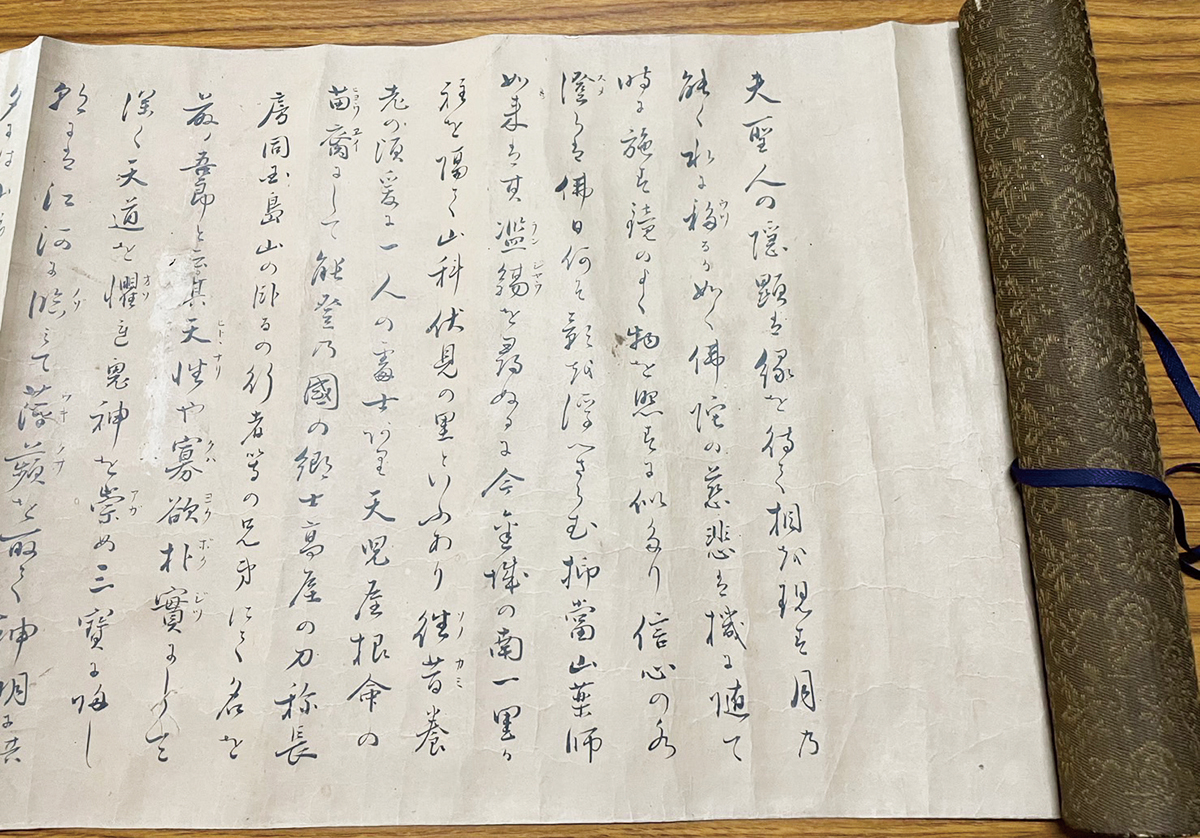 夫聖人の隠顕は縁を待て相を現す月乃
能く水に移るか如く佛陀の慈悲は機に随て
時に施す鏡のよく物を照すに似たり信心の水
澄るは佛日何そ影を浮へさらむ抑當山薬師
如来は其濫觴を尋ぬるに今金城の南一里
程を隔て山科伏見の里といふあり徃昔養
老の頃爰に一人の 士あり天児屋根命の
苗裔にして能登乃國の郷士高屋の刀称長
房同国島山の臥るの行者等の兄弟にて名を
藤吾郎と云其天性や寡欲朴實にして
深く天道を懼れ鬼神を崇め三寶に帰し
朝には江河に臨みて薄蘋を取て神明に其
夕には山